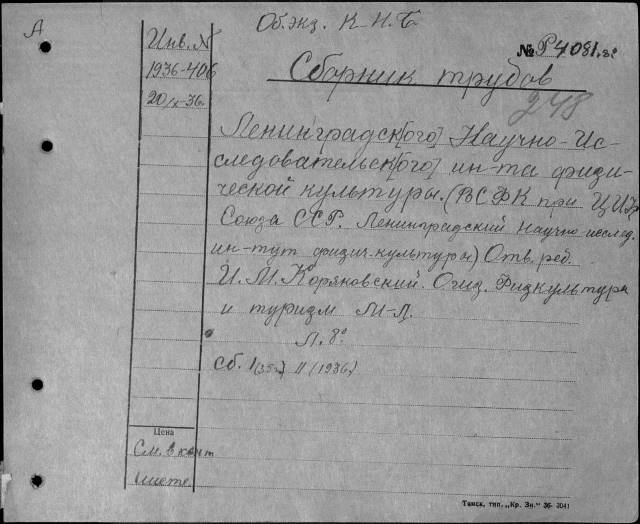 А
Об. экз. К-Н-Б
Инв. N
1936-406
20/X-36.
№ Р4081.
Сборник трудов
248
Ленинградск[ого] Научно-Ис-
следовательск[ого] ин-та физи-
ческой культуры. (ВСФК при ЦИК
Союза ССР. Ленинградский Научно исслед.
ин-тут физич. культуры) Отв. ред.
И. М. Коряковский. Огиз. Физкультура
и туризм М-Л.
Л. 8°
Сб. 1 II (1936)
Цена
См. в конт
Томск, тип. „Кр. Зн." 36- 3041